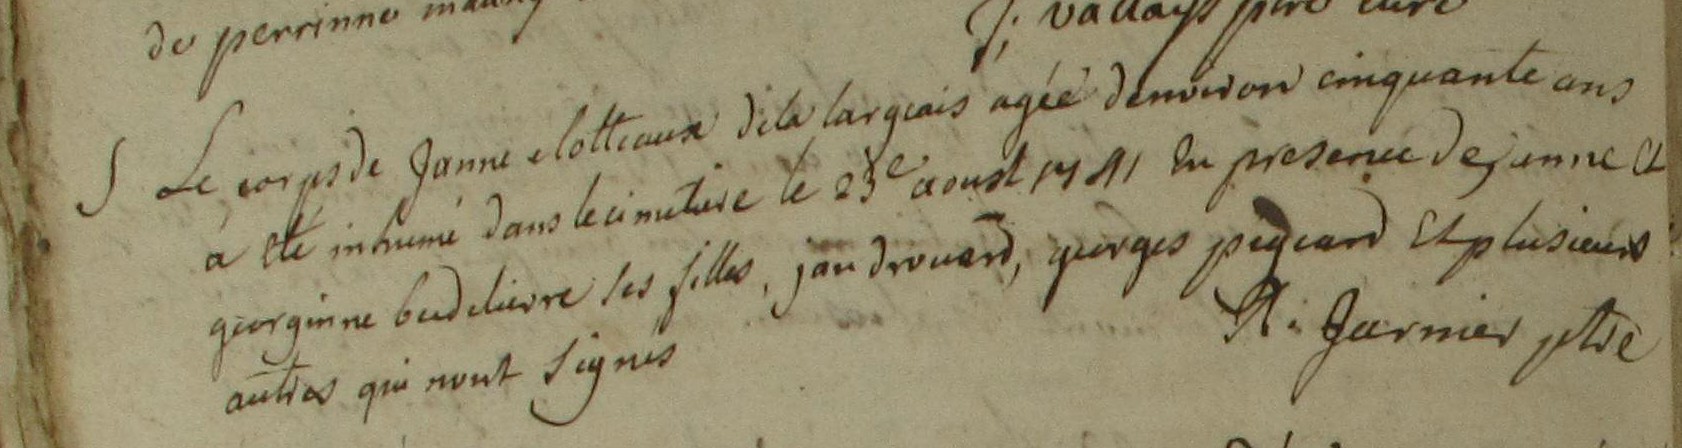 de perrinne
J. vallays ptre curé
S Le corps de Janne clotteaux de la largeais agée denviron cinquante ans
a eté inhumé dans le cimetiere le 23e aoust 1741 En presence de janne Et
georginne budelievre ses filles, jan drouard, georges pigeard Et plusieurs
autres qui nont signés
R. Garnier ptre